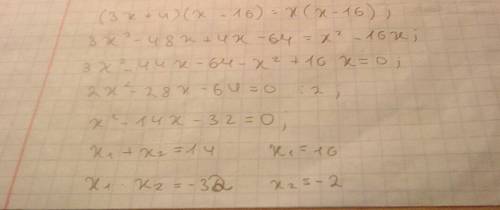 (3x+4)(x-16)=x(x-16);
3x²-48x+4x-64=x²-16x;
3x²-44x-64-x²+16x=0;
2x²-28x-64=0 :2;
x²-14x-32=0;
x₁+x₂=14 x₁=16
x₁·x₂=-32 x₂=-2